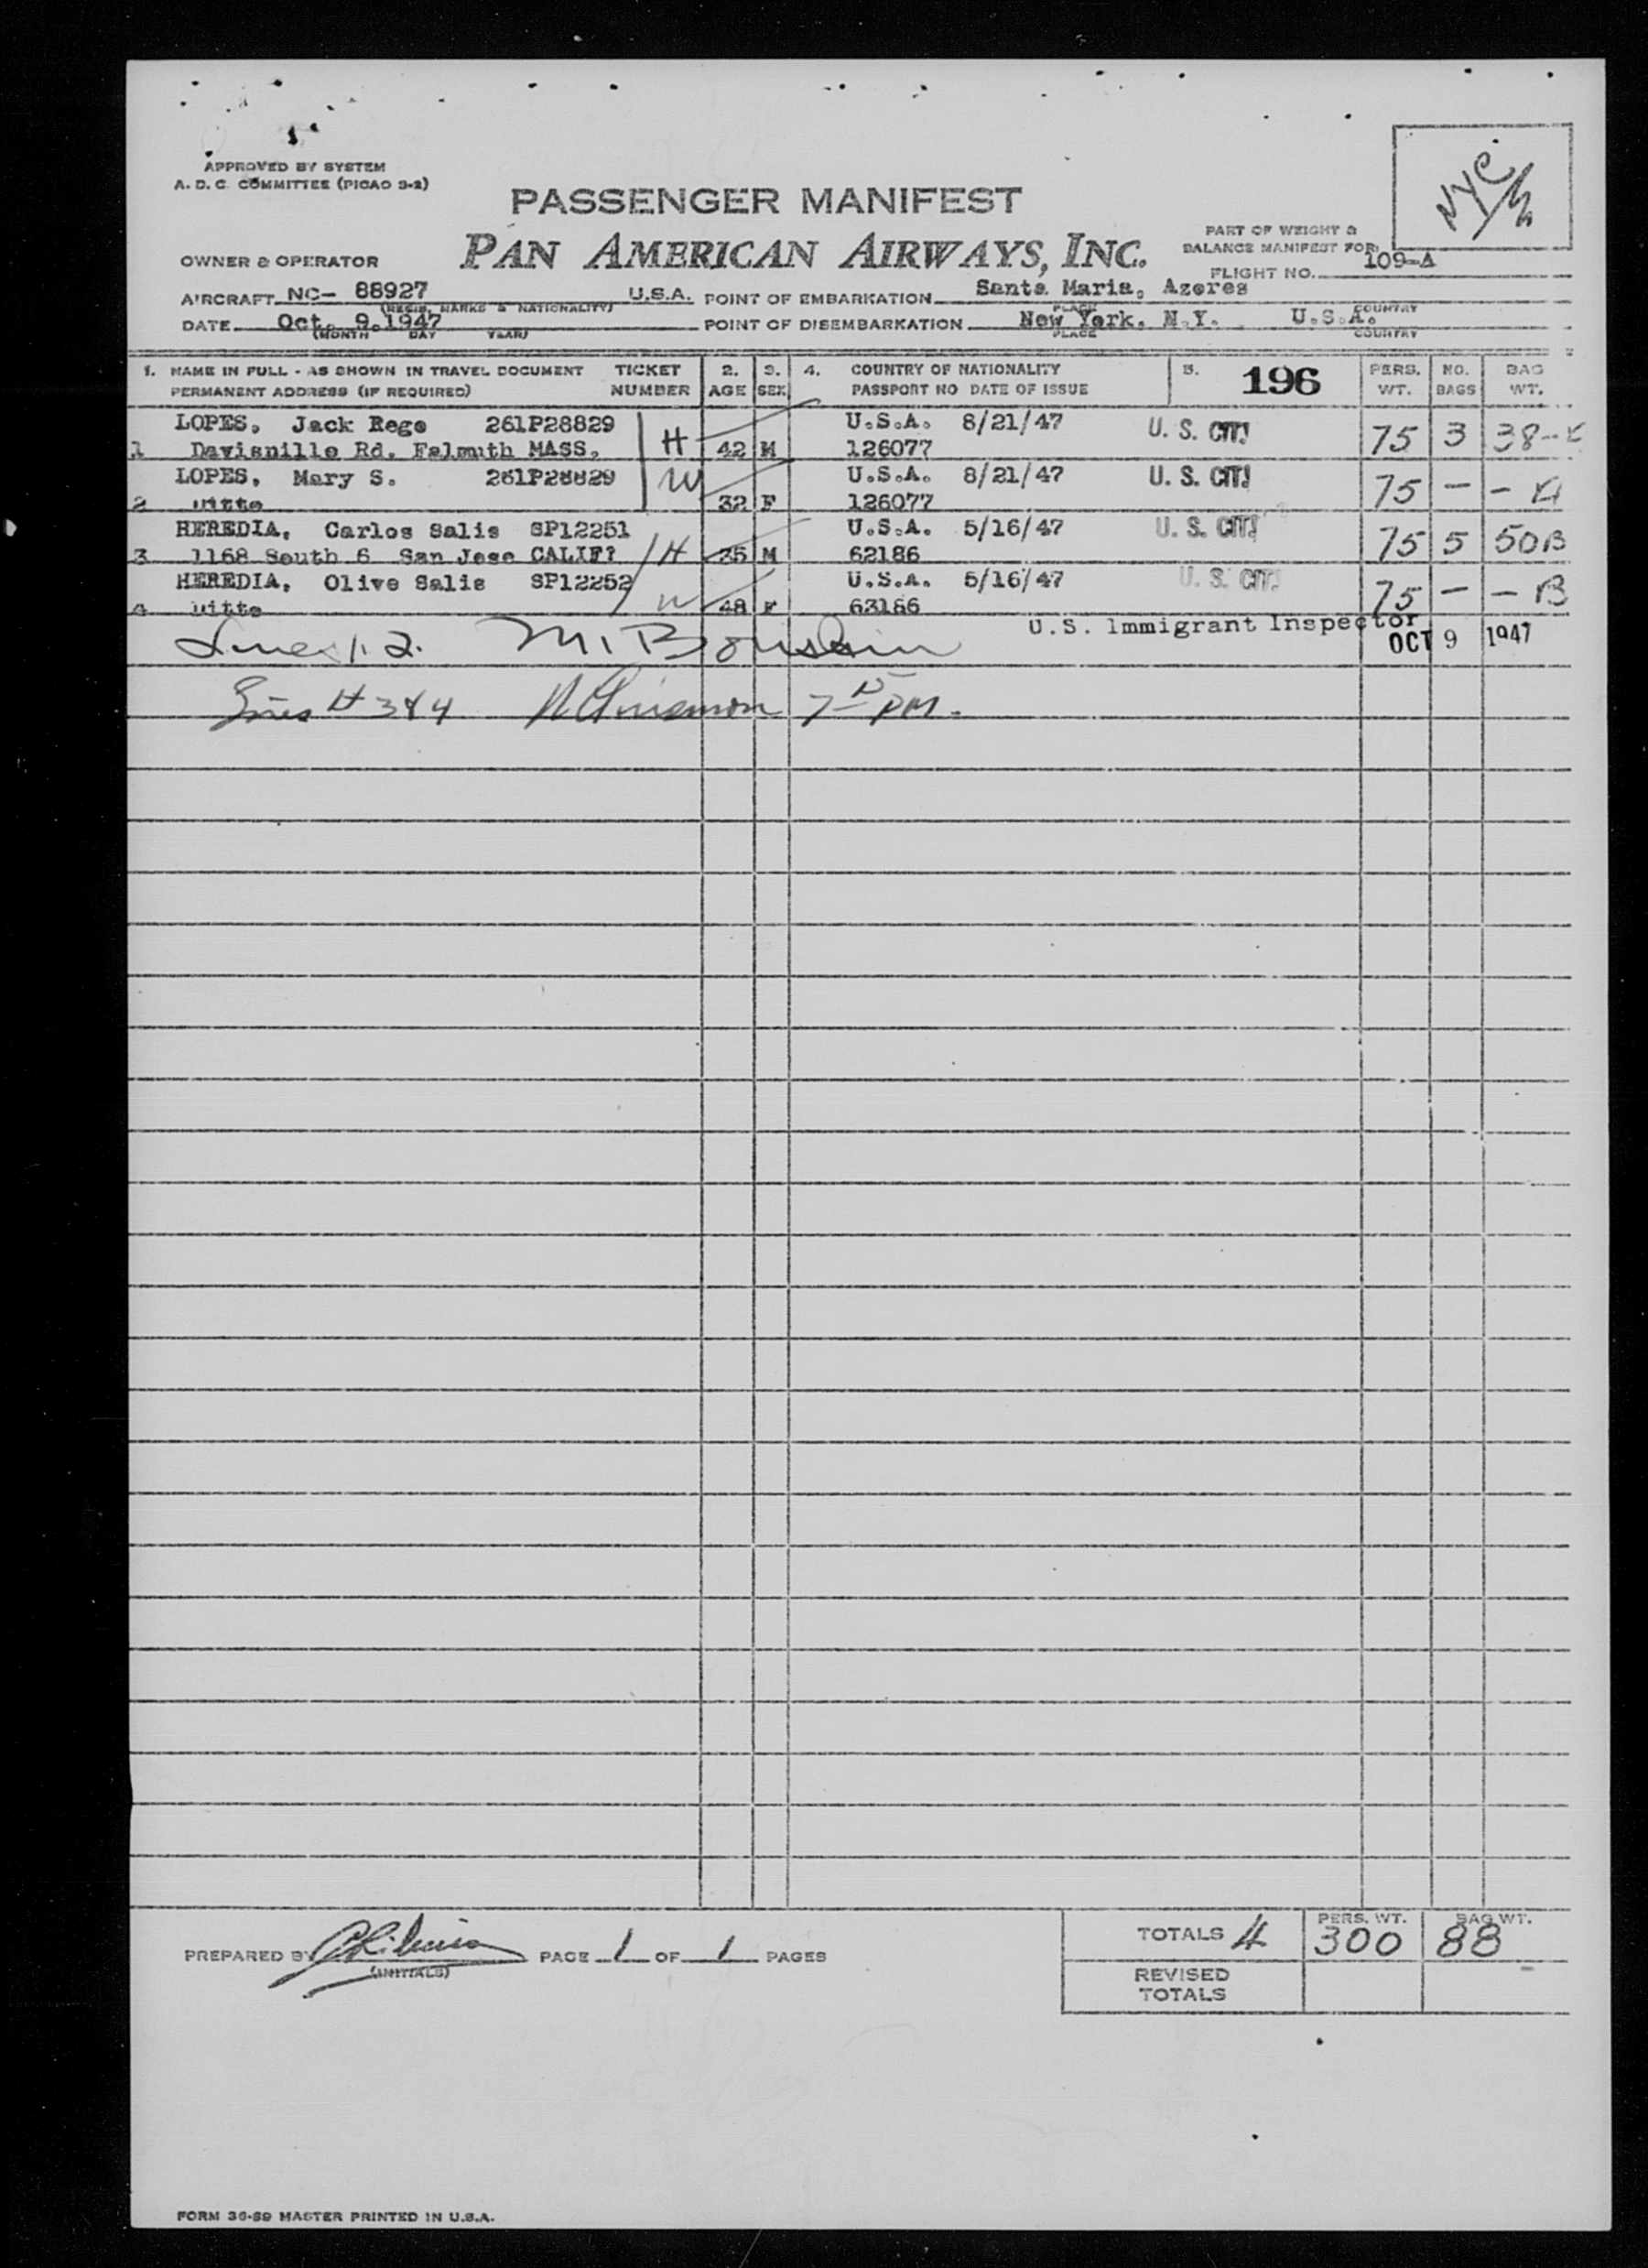 APPROVED BY SYSTEM
A. D. C. COMMITTEE (PICAO 3-2)
NYC
PASSENGER MANIFEST
PAN AMERICAN AIRWAYS, INC.
PART OF WEIGHT &
BALANCE MANIFEST FOR
FLIGHT NO. 109-A
OWNER & OPERATOR
AIRCRAFT NC- 88927 U.S.A. POINT OF EMBARKATION Santa Maria, Azores
(REGIS. MARKS & NATIONALITY) PLACE COUNTRY
DATE Oct. 9,1947 POINT OF DISEMBARKATION New York, N.Y. U.S.A.
(MONTH DAY YEAR) PLACE COUNTRY
1. NAME IN FULL - AS SHOWN IN TRAVEL DOCUMENT TICKET 2. 3. 4. COUNTRY OF NATIONALITY 5. 196 PERS. NO. BAG
PERMANENT ADDRESS (IF REQUIRED) NUMBER AGE SEX PASSPORT NO DATE OF ISSUE WT. BAGS WT.
LOPES, Jack Rego 261P28829 U.S.A. 8/21/47 U. S. CIT.
1 Davisnille Rd. Falmuth MASS. H 42 M 126077 75 3 38-
LOPES, Mary S. 261P28829 W U.S.A. 8/21/47 U. S. CIT.
2 Ditto 32 F 126077 75 - -
HEREDIA, Carlos Salis SP12251 U.S.A. 5/16/47 U. S. CIT.
3 1168 South 6 San Jose CALIF? H 35 M 62186 75 5 50B
HEREDIA, Olive Salis SP12252 U.S.A. 5/16/47 U. S. CIT.
4 Ditto W 48 F 63186 75 - - B
U.S. Immigrant Inspector
Lines 1.2. M. OCT 9 1947
Lines # 3&4 7 15 PM.
PREPARED BY PAGE 1 OF 1 PAGES
(INITIALS)
TOTALS 4 PERS. WT. 300 BAG WT. 88
REVISED
TOTALS
FORM 36-59 MASTER PRINTED IN U.S.A.